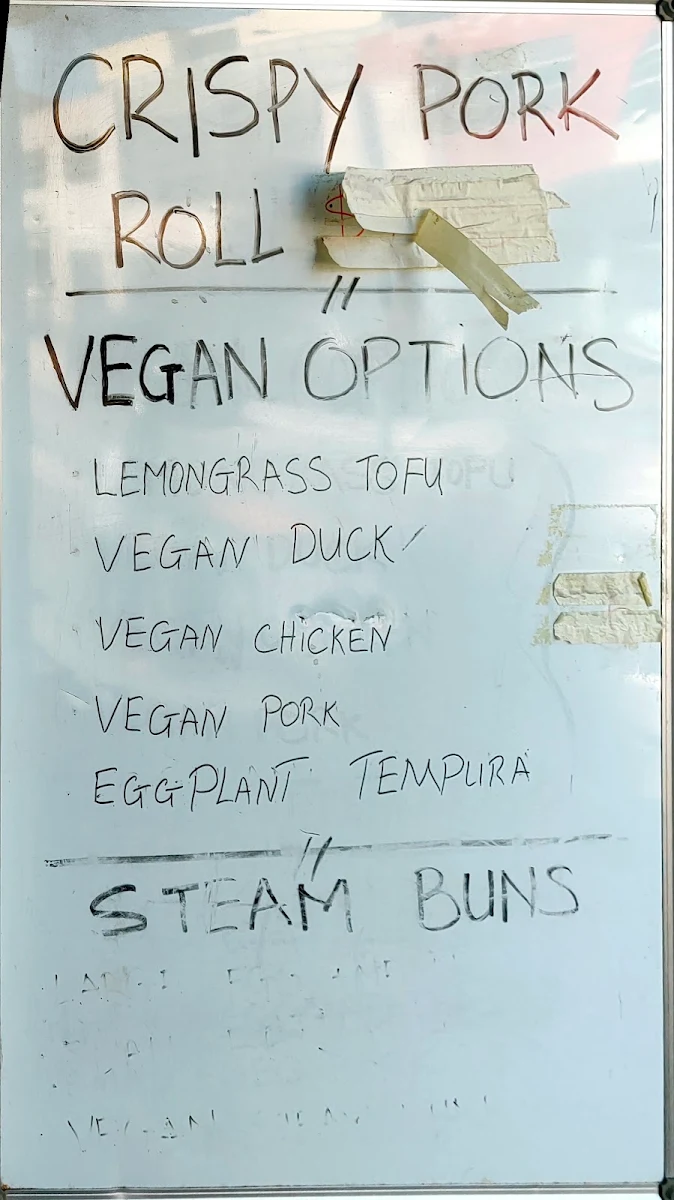 CRISPY PORK
ROLL $
VEGAN OPTIONS
LEMONGRASS TOFU
VEGAN DUCK
VEGAN CHICKEN
VEGAN PORK
EGGPLANT TEMPURA
STEAM BUNS
VEGAN